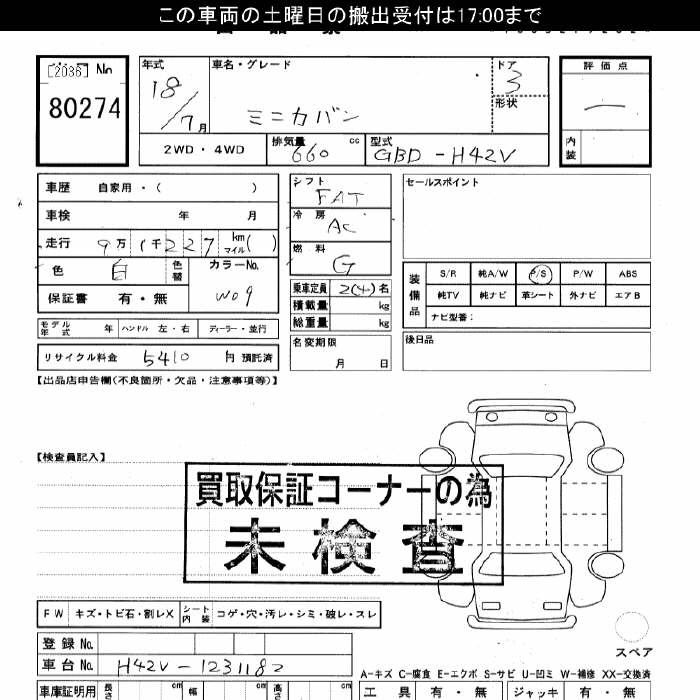 この車両の土曜日の搬出受付は17:00まで
[2036] No
80274
年式
18/7月
車名・グレード
ミニカバン
ドア
3
形状
評価点
内装
2WD・4WD
排気量 660 cc
型式 GBD-H42V
車歴 自家用・( )
車検 年 月
走行 9万1千227 km マイル( )
色 白 色替
カラーNo. W09
保証書 有・無
モデル年式 年 ハンドル 左・右 ディーラー・並行
リサイクル料金 5410 円 預託済
シフト FAT
冷房 AC
燃料 G
乗車定員 2(4)名
積載量 kg
総重量 kg
名変期限
月 日
セールスポイント
装備品
S/R 純A/W P/S P/W ABS
純TV 純ナビ 革シート 外ナビ エアB
ナビ型番:
後日品
【出品店申告欄(不良箇所・欠品・注意事項等)】
【検査員記入】
買取保証コーナーの為
未検査
FW キズ・トビ石・割レX シート内装 コゲ・穴・汚レ・シミ・破レ・スレ
登録No.
車台No. H42V-1231182
スペア
A-キズ C-腐食 E-エクボ S-サビ U-凹ミ W-補修 XX-交換済
車庫証明用 長さ cm 幅 cm 高さ cm
工具 有・無 ジャッキ 有・無